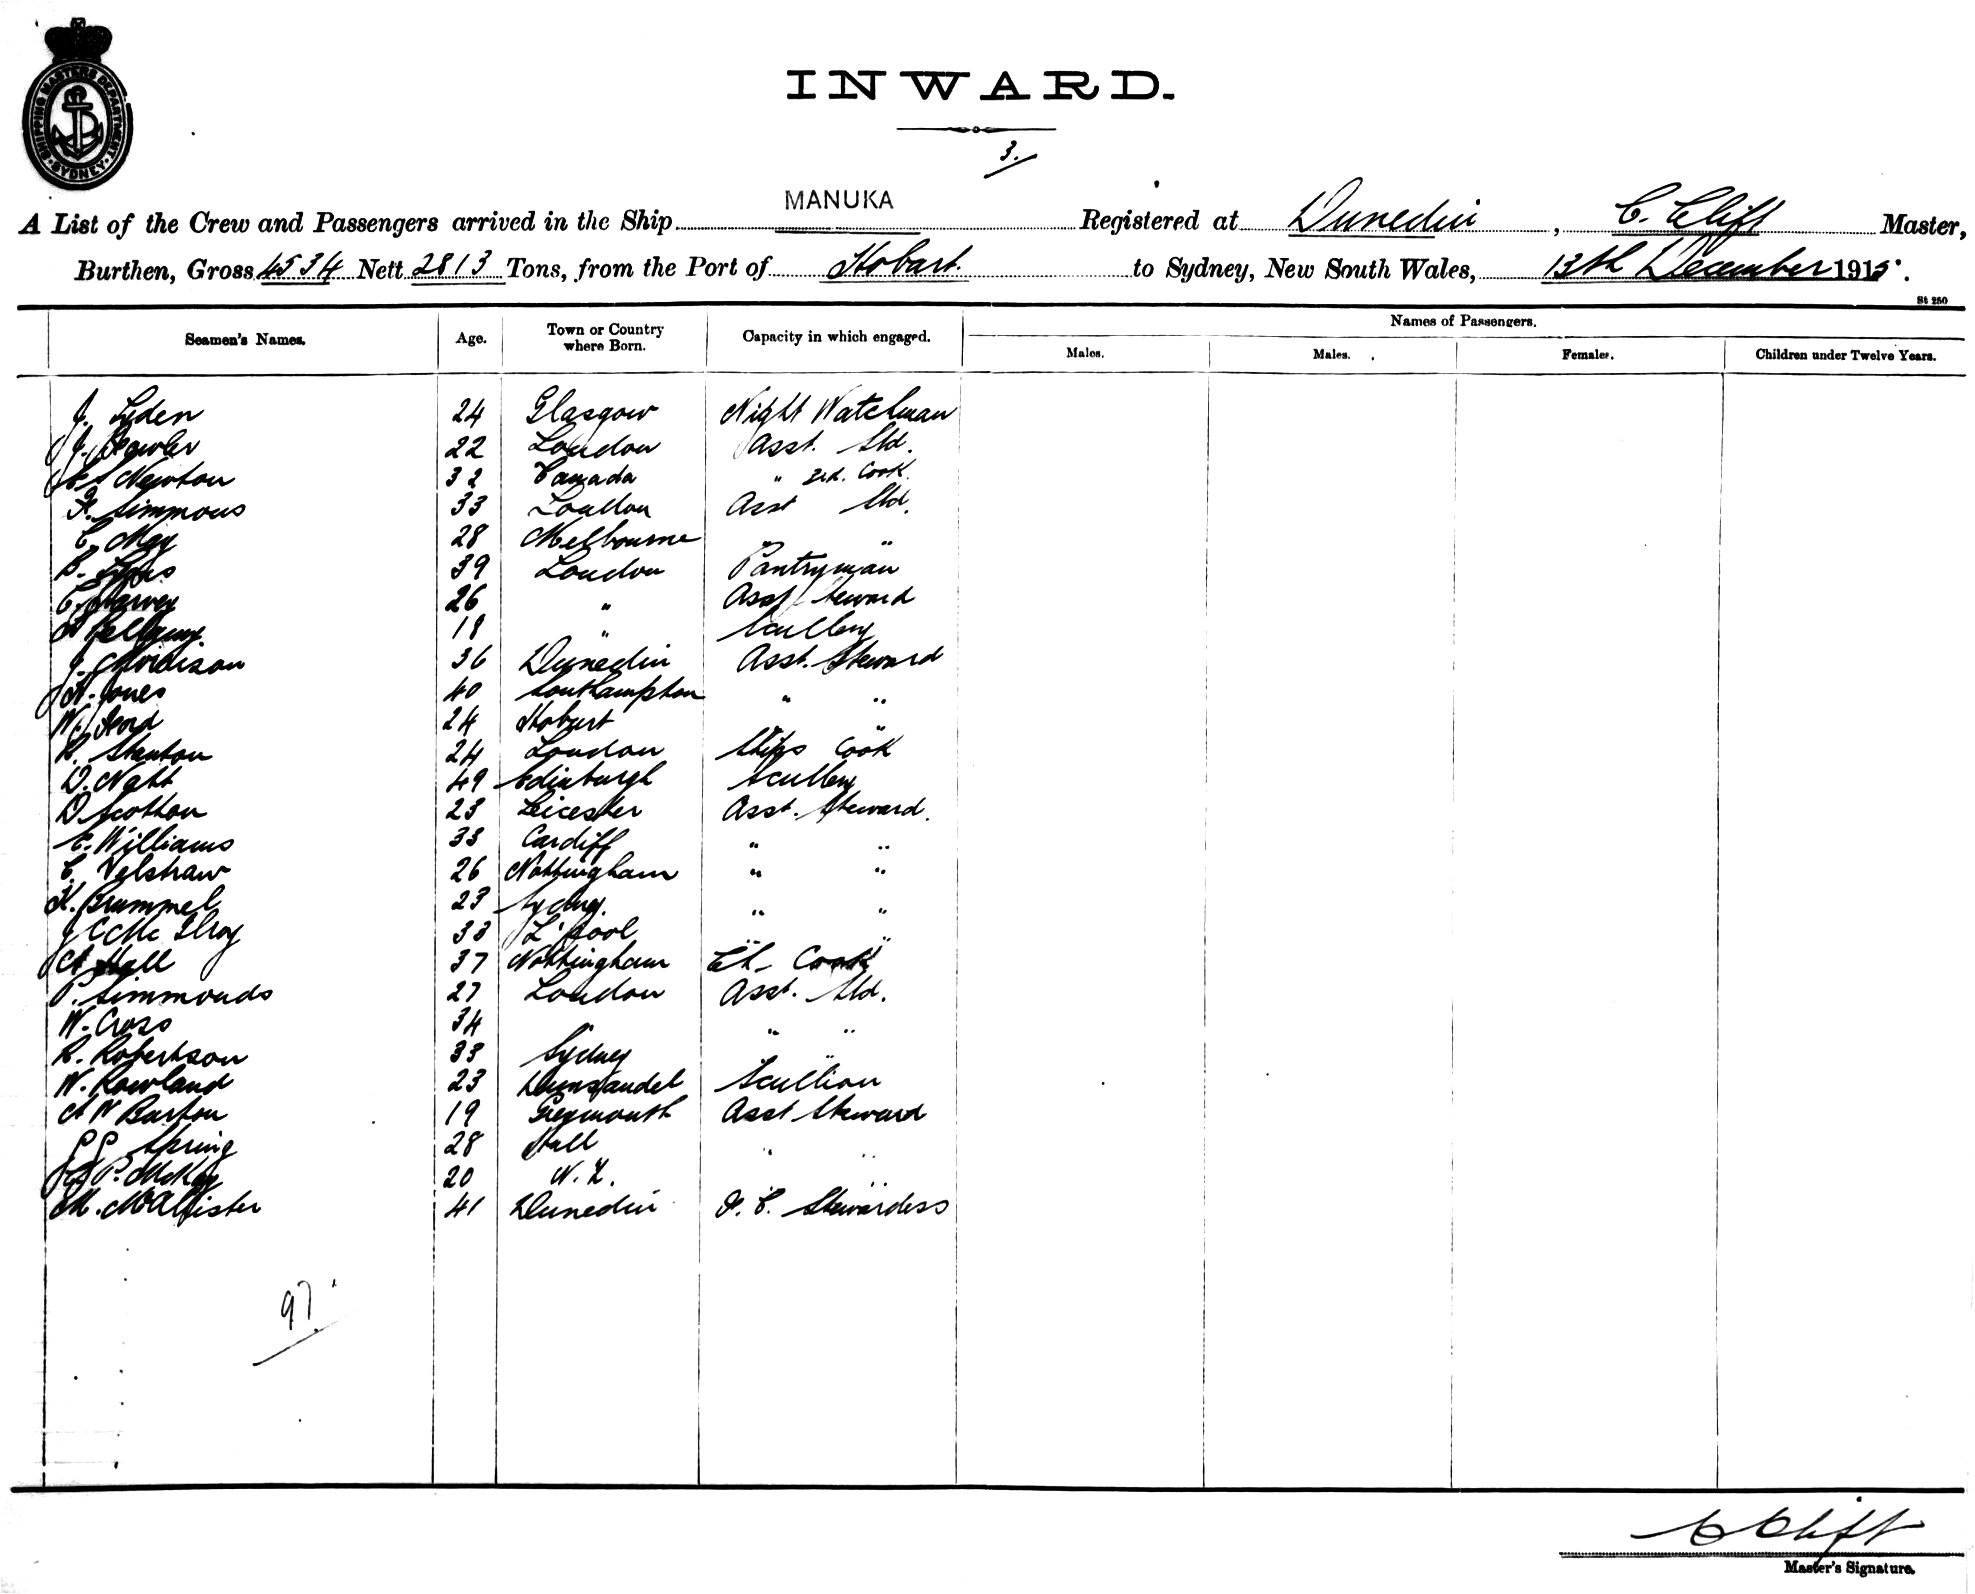 SHIPPING MASTERS DEPARTMENT SYDNEY
INWARD.
3.
A List of the Crew and Passengers arrived in the Ship MANUKA Registered at Dunedin, C. Clift Master,
Burthen, Gross 4534 Nett 2813 Tons, from the Port of Hobart. to Sydney, New South Wales, 13th December 1915.
St 250
Seamen's Names. Age. Town or Country where Born. Capacity in which engaged. Names of Passengers.
Males. Males. Females. Children under Twelve Years.
J. Lyden 24 Glasgow Night Watchman
J. 22 London Asst. Std.
Newton 32 Canada " 3rd. Cook.
F. Simmons 33 London Asst Std.
C. May 28 Melbourne " "
B. 39 London Pantryman
C. Harvey 26 " Asst Steward
Bellamy. 18 " Scullery
J. Morrison 36 Dunedin Asst. Steward
H. Jones 40 Southampton " "
W. Ford 24 Hobart "
H. Stanton 24 London Ships Cook
D. Natt 49 Edinburgh Scullery
D Scotton 23 Leicester Asst. Steward.
E. Williams 33 Cardiff " "
C. Velshaw 26 Nottingham " "
H. Brummel 23 Sydney. " "
J C McIlroy 33 L'pool " "
A Hall 37 Nottingham Ch. Cook
P. Simmonds 27 London Asst. Std.
W. Cross 34 " " "
R. Robertson 33 Sydney "
W. Rowland 23 Dunsandel Scullion
A W Burton 19 Greymouth Asst Steward
Spring 28 Hull " "
P. McKay 20 N.Z. "
M. McAllister 41 Dunedin F. C. Stewardess
97.
C Clift
Master's Signature.